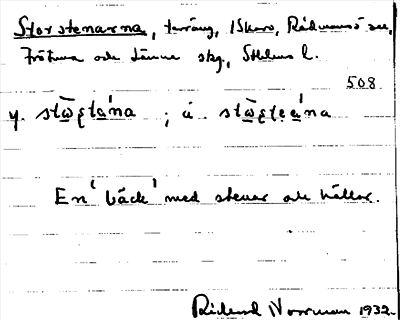 Storstenarna, terräng, 1 Skaro, Rådmansö sn,
Frötuna och Länna skg, Sthlms l.
508
y. stὼʂtɑ́na ; ä. stὼʂteɑ́na
En 'bäck' med stenar och hällar.
Rickard Norrman 1932.